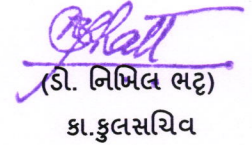 (ડૉ. નિખિલ ભટ્ટ)
કા.કુલસચિવ